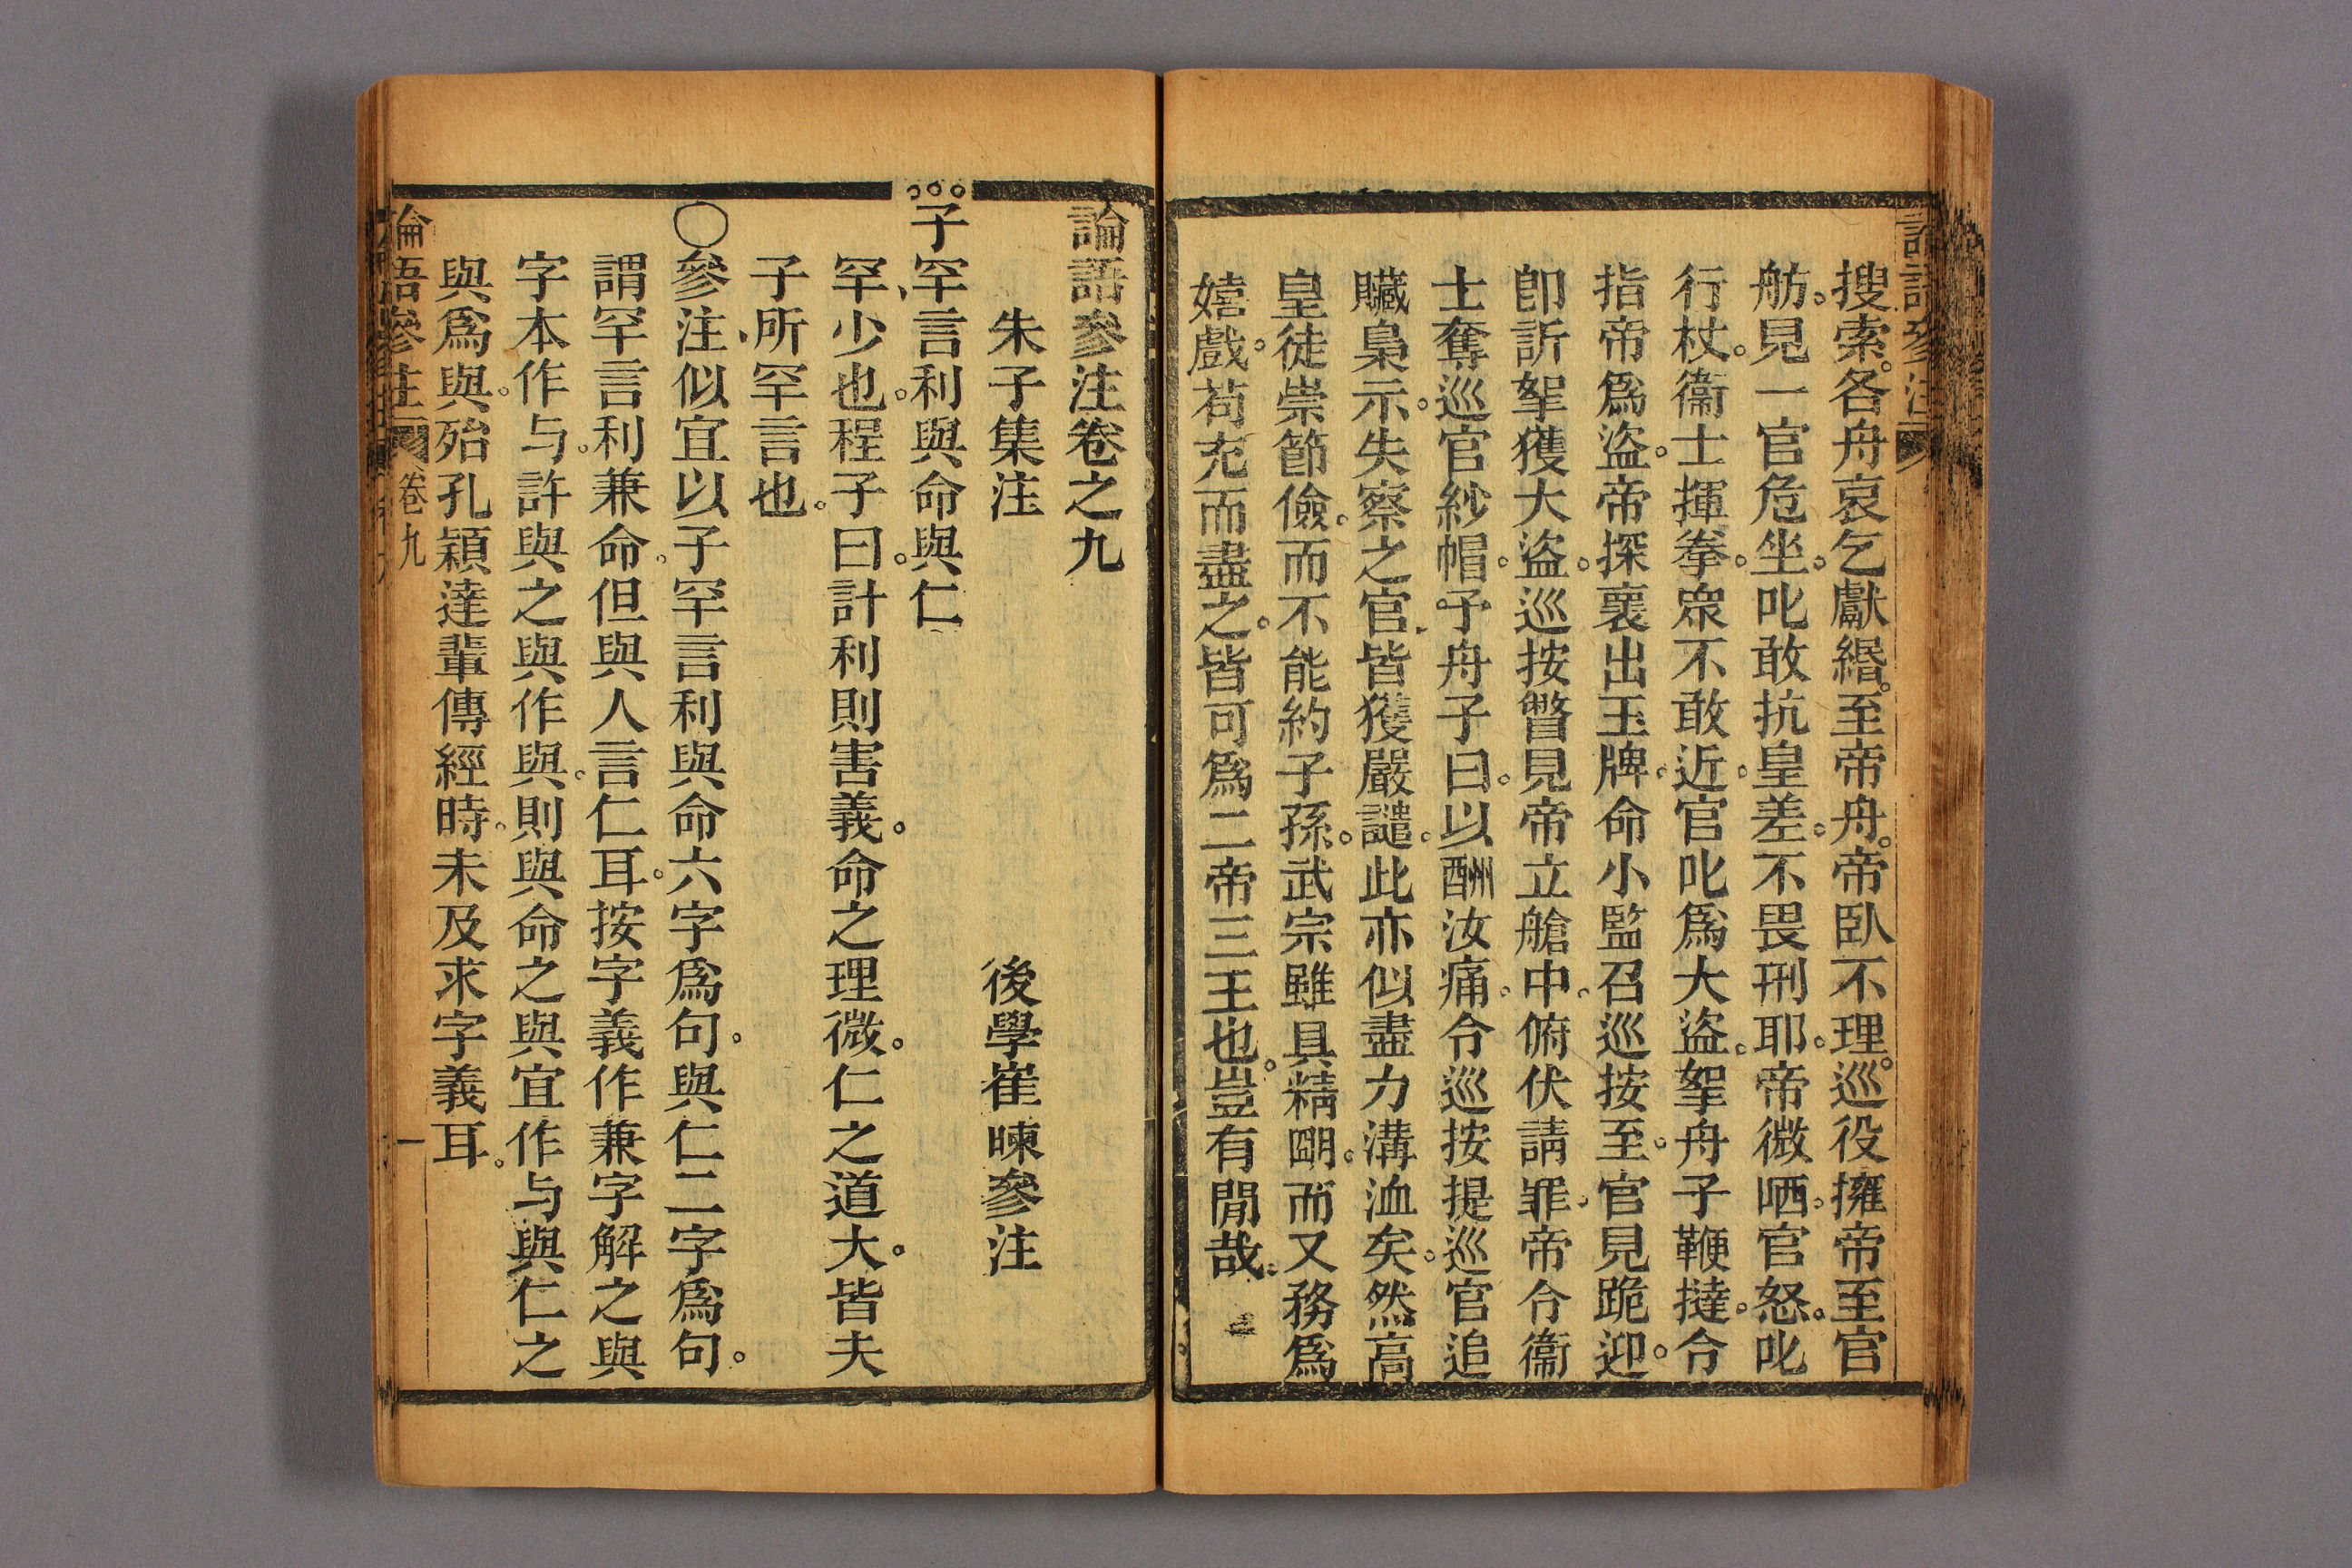 搜索。各舟哀乞獻緡。至帝舟。帝臥不理。巡役擁帝至官
舫。見一官危坐。叱敢抗皇差。不畏刑耶。帝微哂。官怒。叱
行杖。衞士揮拳。眾不敢近。官叱爲大盜。挐舟子鞭撻。令
指帝爲盜。帝探裏出玉牌。命小監召巡按至。官見跪迎。
卽訴挐獲大盜。巡按瞥見帝立艙中。俯伏請罪。帝令衞
士奪巡官紗帽。予舟子曰。以酬汝痛。令巡按提巡官追
贓梟示。失察之官。皆獲嚴譴。此亦似盡力溝洫矣。然高
皇徒崇節儉。而不能約子孫。武宗雖具精朙。而又務爲
嬉戲。苟充而盡之。皆可爲二帝三王也。豈有閒哉。
論語參注卷之九
朱子集注 後學崔暕參注
子罕言利與命與仁
罕、少也。程子曰。計利則害義。命之理微。仁之道大。皆夫
子所罕言也。
○參注、似宜以子罕言利與命六字爲句。與仁二字爲句。
謂罕言利兼命。但與人言仁耳。按字義作兼字解之與
字本作与。許與之與作與。則與命之與宜作与與仁之
與爲與。殆孔穎達輩傳經時。未及求字義耳。
論語參注 卷九 一